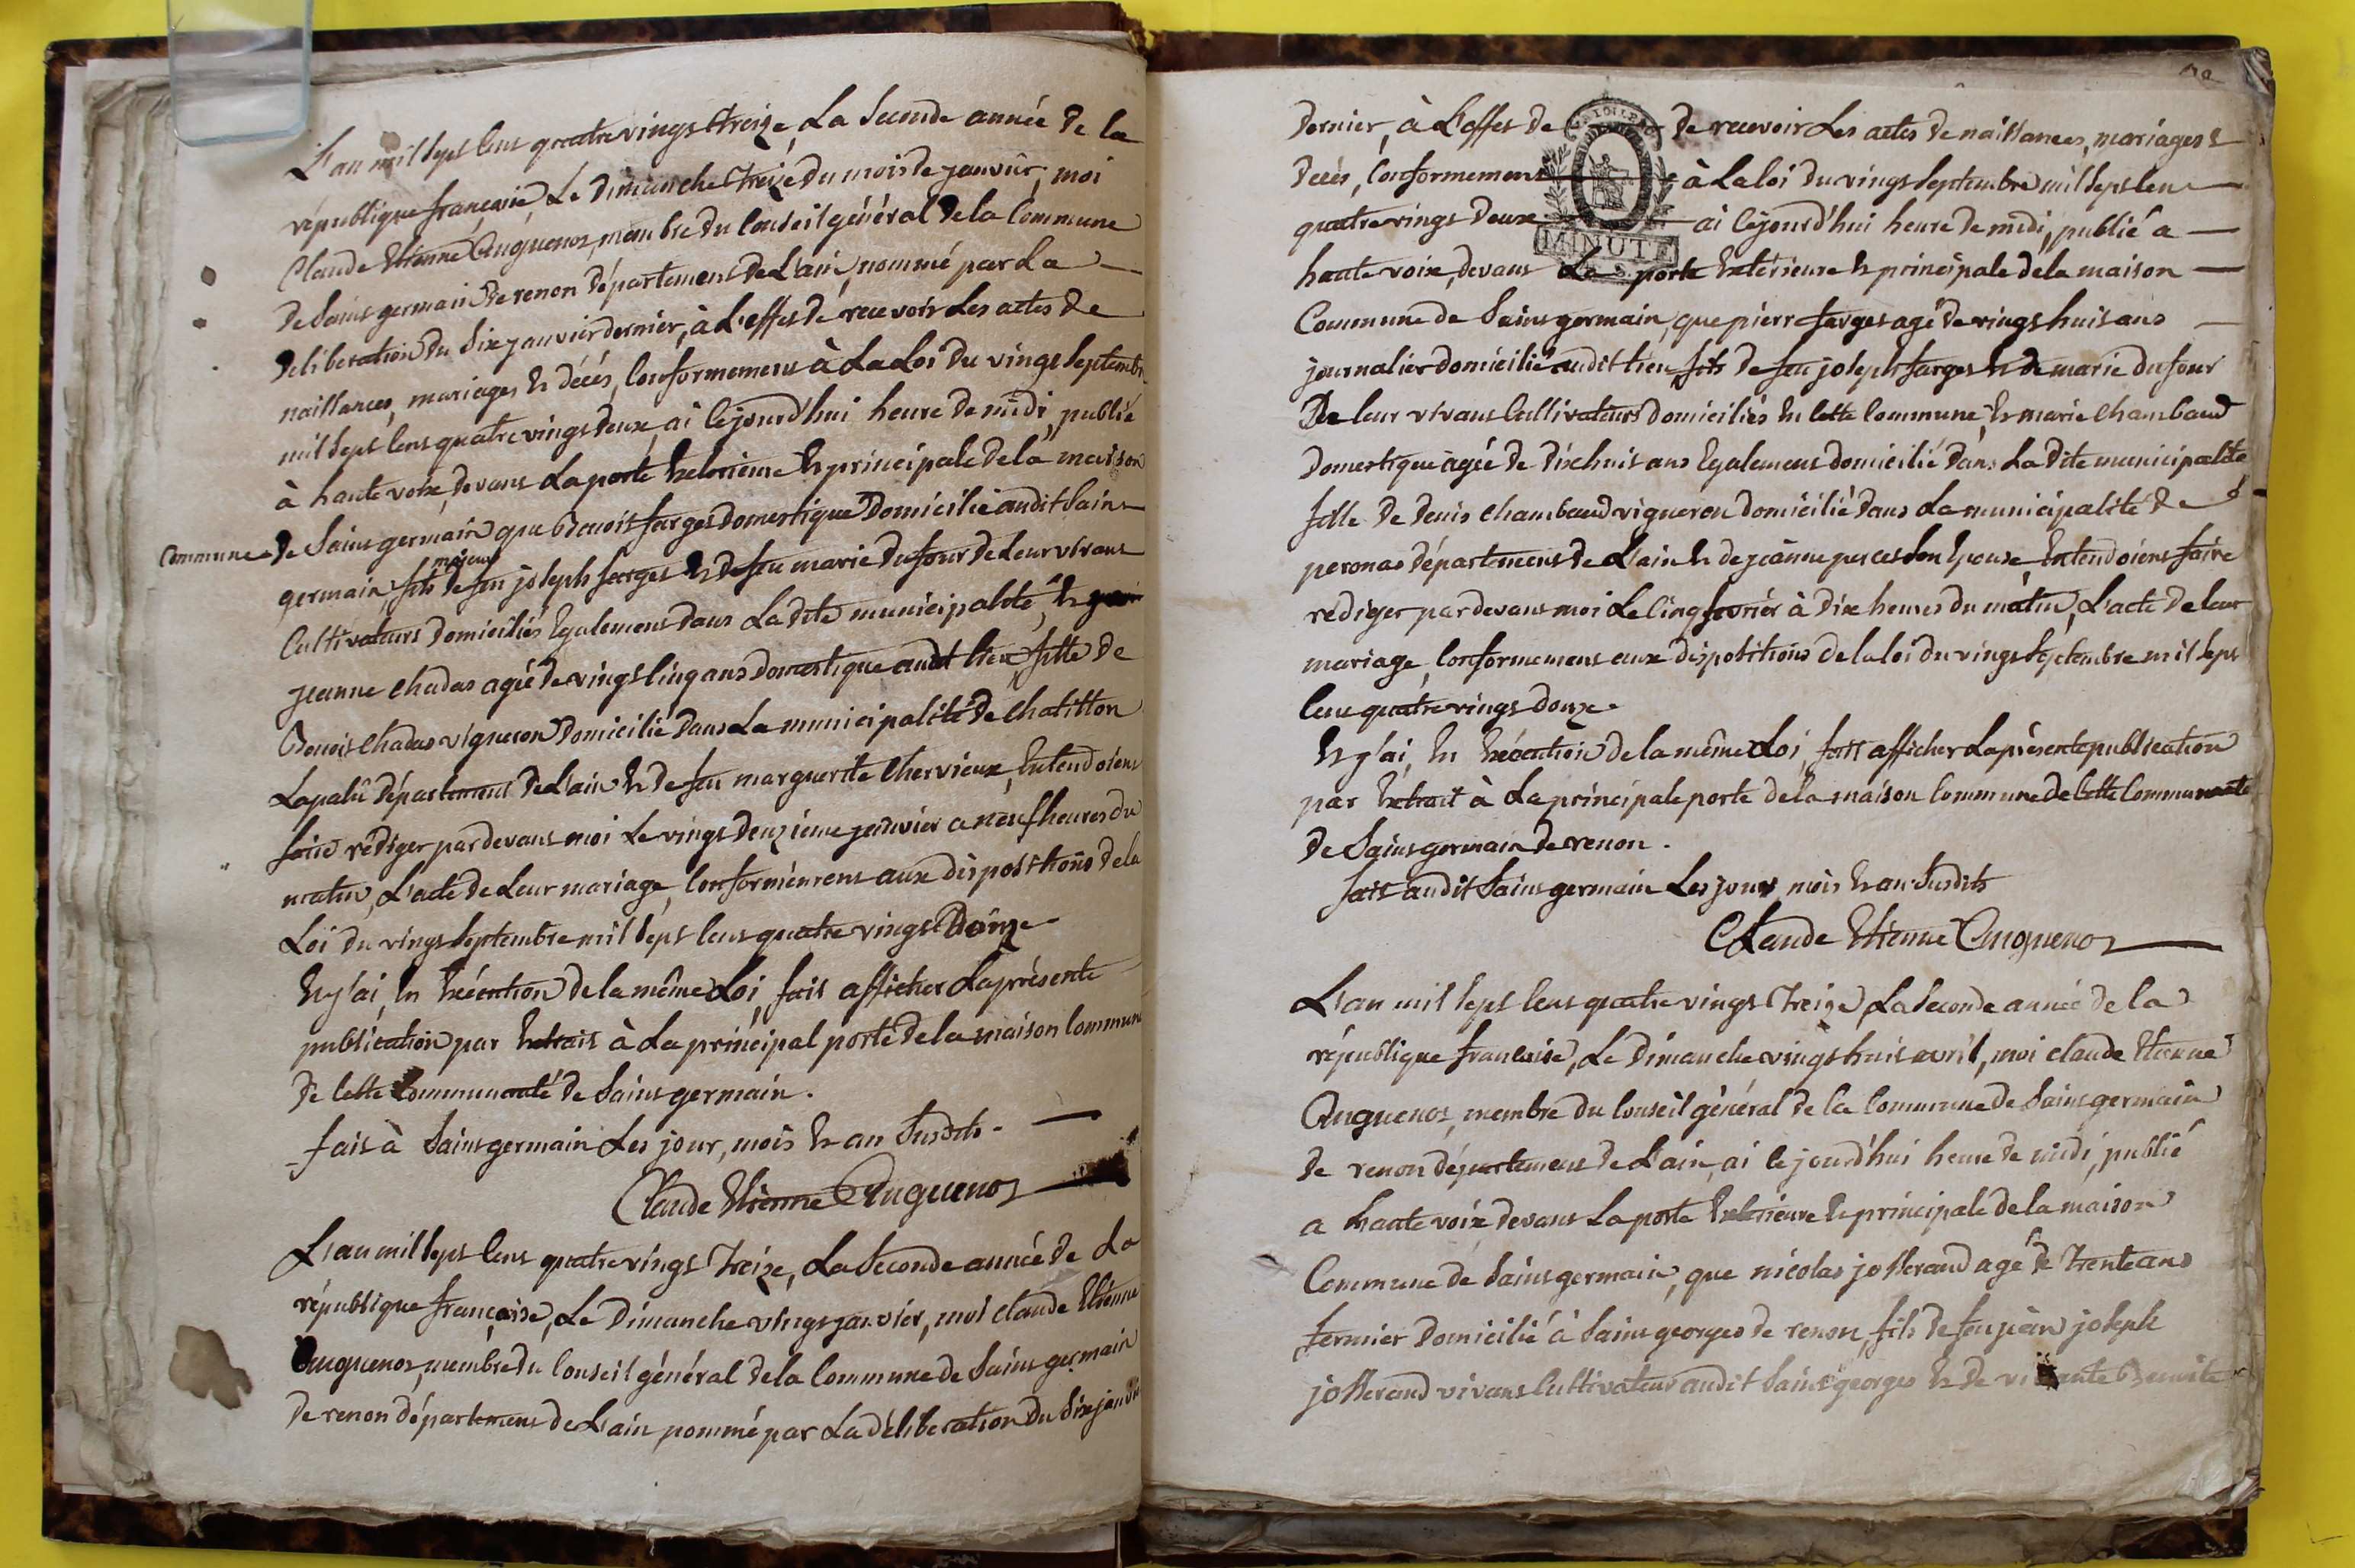 L'an mil sept cens quatre vingt treize, La seconde année de la
république françoise, Le dimanche treize du mois de janvier, moi
Claude Etienne Cuguenot, membre du Conseil général de la Commune
de Saint germain de renon département de L'ain, nommé par La
deliberation du Six janvier dernier, à L'effet de recevoir Les actes de
naissances, mariages et décés, Conformement à La Loi du vingt septembre
mil sept cens quatre vingt douze, ai cejourd'hui heure de midi, publié
à haute voix, devant La porte Exterieure et principale de la maison
Commune de Saint germain que Benoit farges Domestique Domicilié audit Saint
germain, fils majeur de feu joseph farges et de feu marie dufour de Leur vivant
Cultivateurs Domiciliés Egalement dans La dite municipalité, et
jeanne chadas agée de vingt cinq ans domestique audit lieu, fille de
Benoit chadas vigneron Domicilié dans La municipalité de chatillon
Lapalû département de L'ain et de feu marguerite chervieux, Entendoient
faire rédiger pardevant moi Le vingt deuzieme janvier a neuf heures du
matin, L'acte de Leur mariage, Conformément aux dispositions de la
Loi du vingt septembre mil sept cens quatre vingt Douze
Et j'ai, En Exécution de la même Loi, fait afficher La présente
publication par Extrait à La principal porte de la maison Commune
de Cette Communauté de Saint germain.
fait à Saint germain Les jour, mois et an susdits.
Claude Etienne Cuguenot
L'an mil sept cens quatre vingt treize, La seconde année de La
république françoise, Le Dimanche vingt janvier, moi claude Etienne
Cuguenot, membre du Conseil général de la Commune de Saint germain
de renon département de L'ain, nommé par La déliberation du Six janvier
dernier, à L'effet de de recevoir Les actes de naissances, mariages &
décés, Conformement à La loi du vingt septembre mil sept cens
quatre vingt douze ai cejourd'hui heure de midi, publié a
MINUTE
haute voix, devant La porte Extérieure et principale de la maison
Commune de Saint germain, que pierre farges agé de vingt huit ans
journalier domicilié audit lieu, fils de feu joseph farges et de marie dufour
De leur vivant Cultivateurs domiciliés En Cette Commune, Et marie chambaud
domestique agée de dixhuit ans Egalement domicilié dans La dite municipalité
fille de denis chambaud vigneron domicilié dans La municipalité de
peronas département de L'ain et de jeanne perces son Epouse Entendoient faire
rédiger pardevant moi Le Cinq fevrier à Dix heures du matin, L'acte de leur
mariage, Conformement aux dispositions de la loi du vingt septembre mil sept
Cens quatre vingt douze.
Et j'ai, En Exécution de la même Loi, fait afficher La présente publication
par Extrait à La principale porte de la maison Commune de Cette Communauté
de Saint germain de renon.
fait audit Saint germain Les jour, mois et an Susdits
Claude Etienne Cuguenot
L'an mil sept cens quatre vingt treize, La seconde année de la
république françoise, Le dimanche vingt huit avril, moi claude Etienne
Cuguenot, membre du Conseil général de la Commune de Saint germain
de renon département de L'ain, ai cejourd'hui heure de midi, publié
a haute voix devant La porte Exterieure et principale de la maison
Commune de Saint germain, que nicolas josserand agé de trente ans
fermier domicilié à Saint georges de renon, fils de feu jean joseph
josserand vivant Cultivateur audit Saint georges et de vivante Benoite